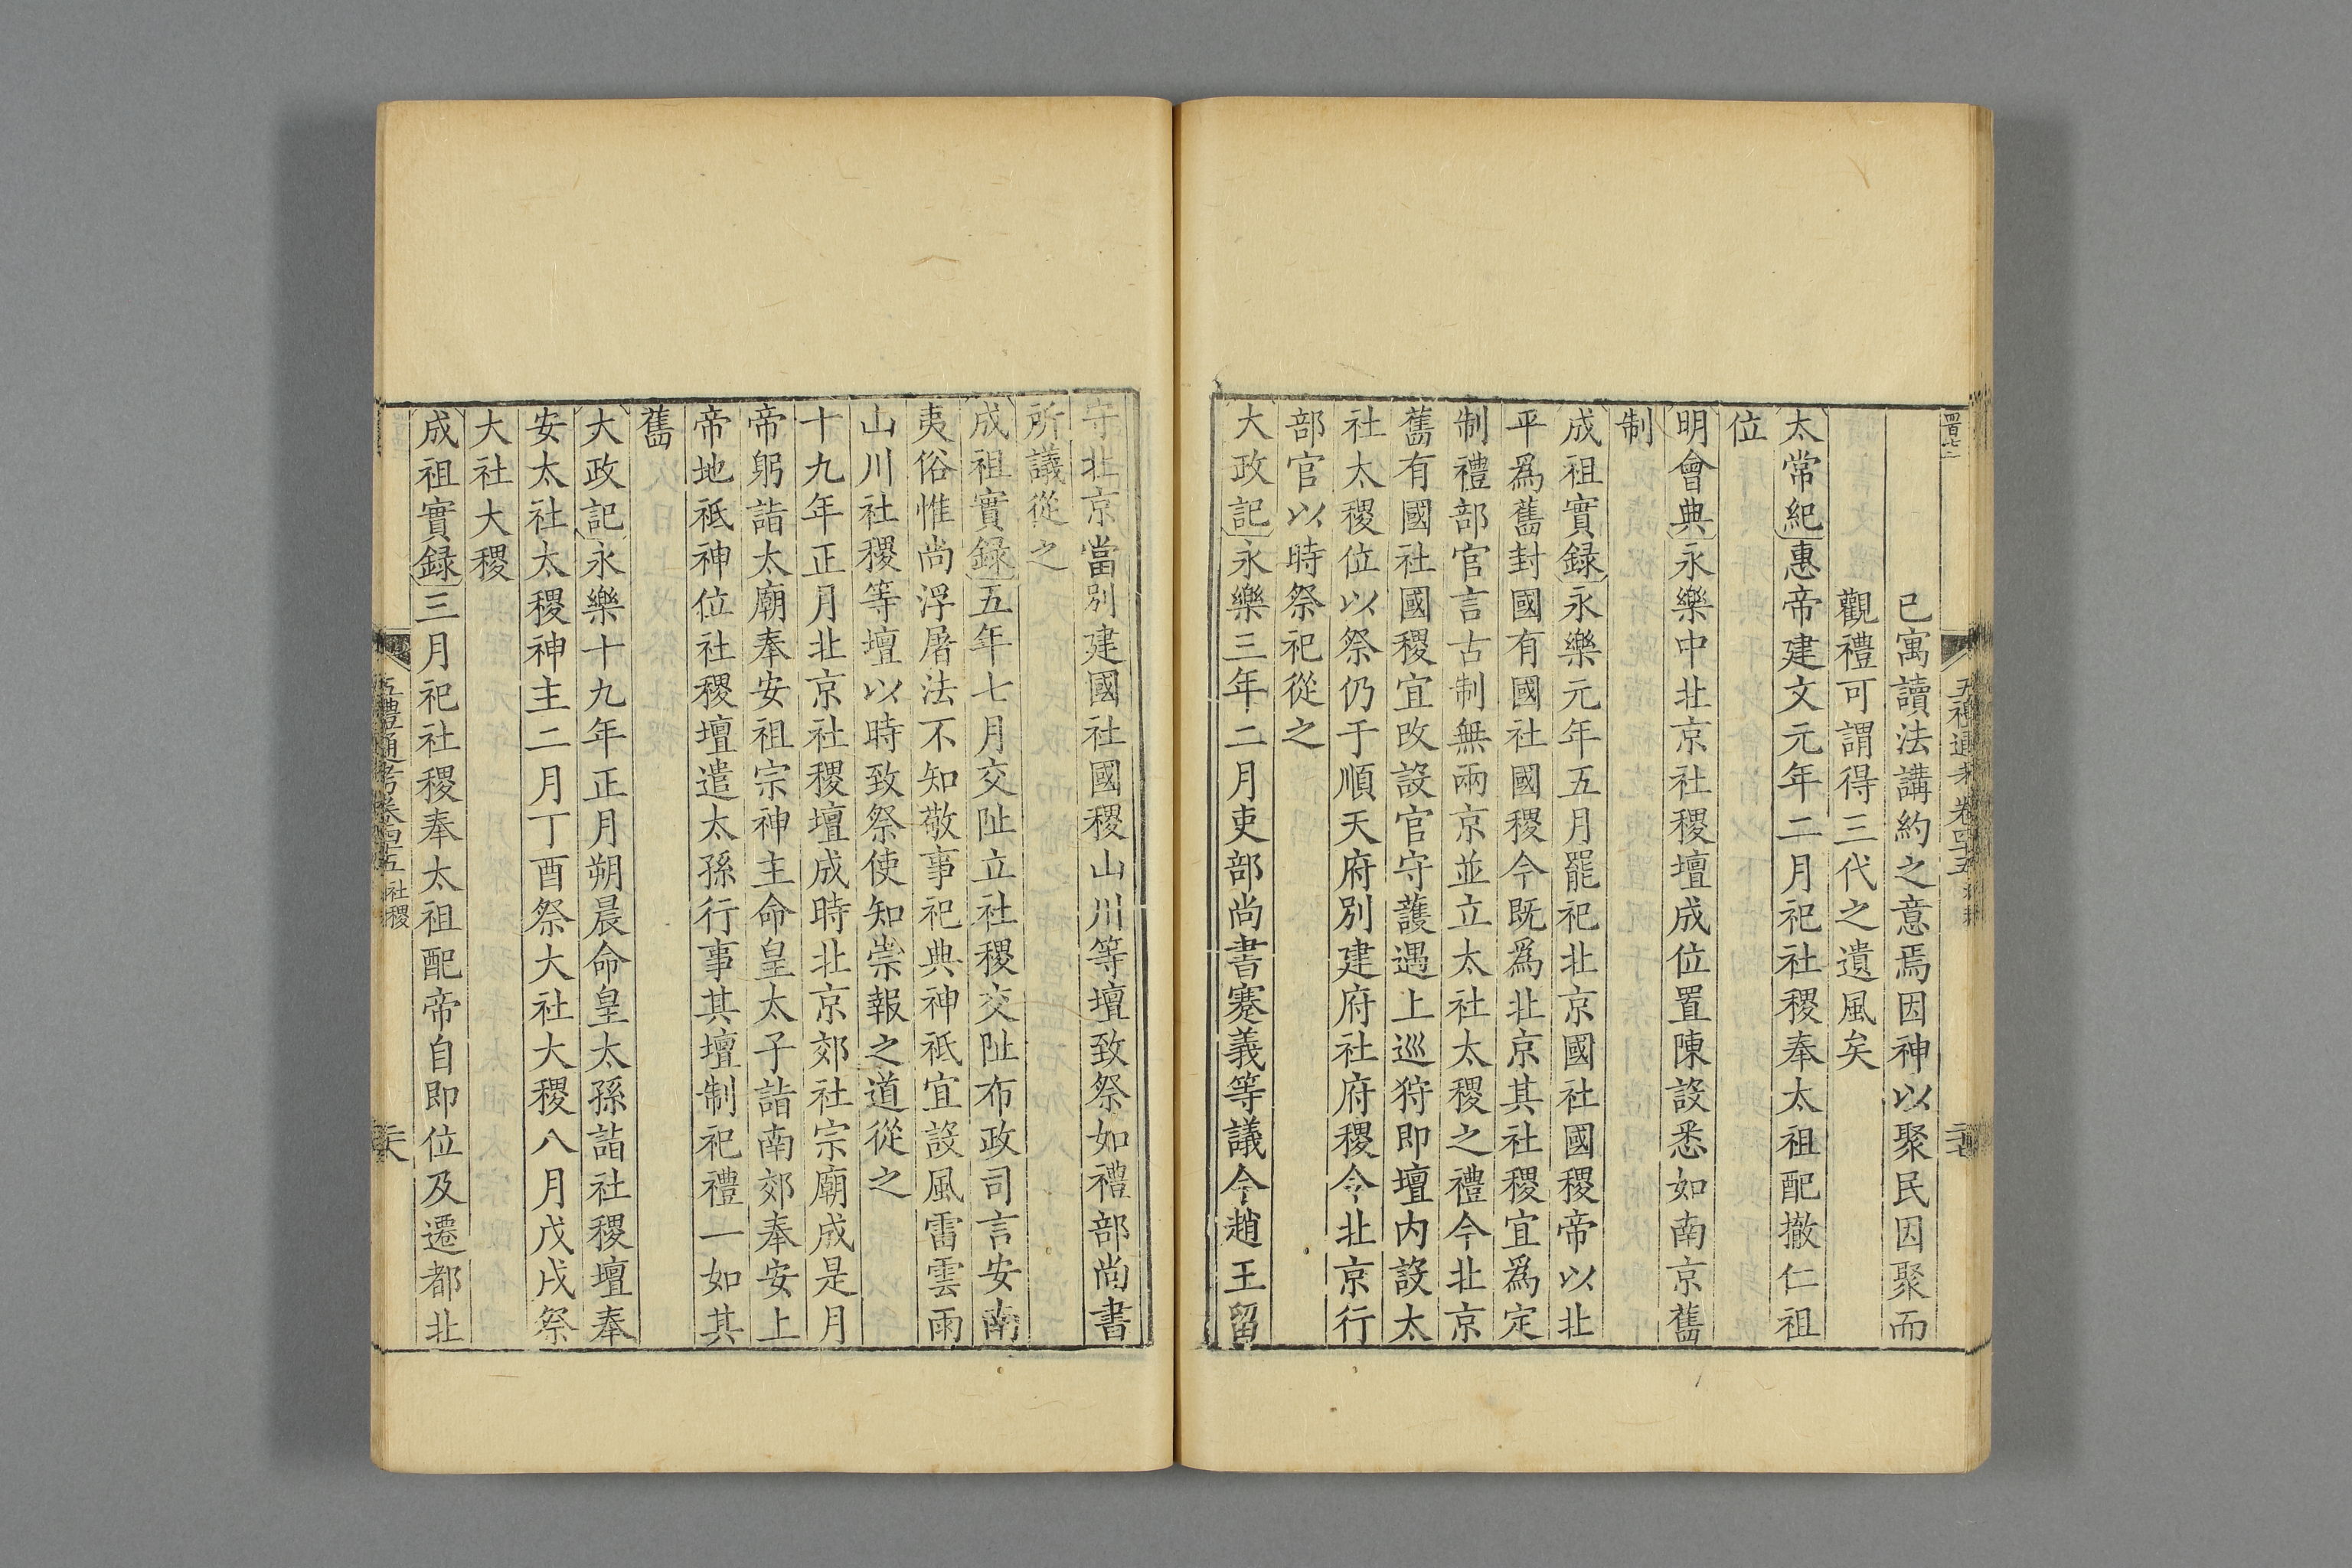 已寓讀法講約之意焉因神以聚民因聚而
觀禮可謂得三代之遺風矣
太常紀惠帝建文元年二月祀社稷奉太祖配撤仁祖
位
明會典永樂中北京社稷壇成位置陳設悉如南京舊
制
成祖實録永樂元年五月罷祀北京國社國稷帝以北
平爲舊封國有國社國稷今既爲北京其社稷宜爲定
制禮部官言古制無兩京並立太社太稷之禮今北京
舊有國社國稷宜改設官守護遇上巡狩即壇內設太
社太稷位以祭仍于順天府別建府社府稷令北京行
部官以時祭祀從之
大政記永樂三年二月吏部尚書蹇義等議今趙王留
守北京當別建國社國稷山川等壇致祭如禮部尚書
所議從之
成祖實録五年七月交阯立社稷交阯布政司言安南
夷俗惟尚浮屠法不知敬事祀典神祇宜設風雷雲雨
山川社稷等壇以時致祭使知崇報之道從之
十九年正月北京社稷壇成時北京郊社宗廟成是月
帝躬詣太廟奉安祖宗神主命皇太子詣南郊奉安上
帝地祇神位社稷壇遣太孫行事其壇制祀禮一如其
舊
大政記永樂十九年正月朔晨命皇太孫詣社稷壇奉
安太社太稷神主二月丁酉祭大社大稷八月戊戌祭
大社大稷
成祖實録三月祀社稷奉太祖配帝自即位及遷都北
五禮通考卷四十五 社稷 二六